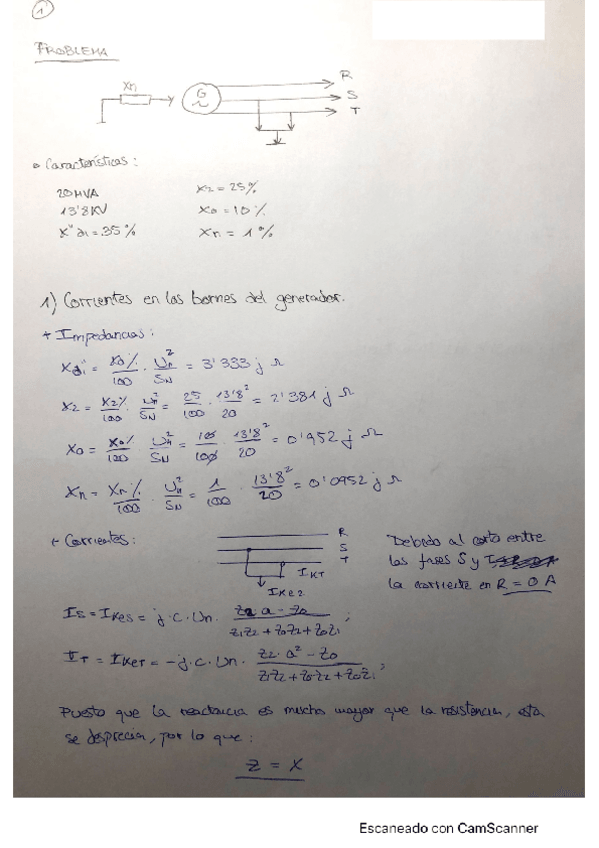 1
PROBLEMA
Xn G R
S
T
Características:
20 MVA X2 = 25%
13'8 KV X0 = 10%
X"di = 35% Xn = 1%
1) Corrientes en los bornes del generador.
+ Impedancias:
Xdi" = Xd% / 100 · Un² / SN = 3'333 j Ω
X2 = X2% / 100 · Un² / SN = 25 / 100 · 13'8² / 20 = 2'381 j Ω
X0 = X0% / 100 · Un² / SN = 10 / 100 · 13'8² / 20 = 0'952 j Ω
Xn = Xn% / 100 · Un² / SN = 1 / 100 · 13'8² / 20 = 0'0952 j Ω
+ Corrientes:
R
S
T
IKT
IKE2
Debido al corto entre
las fases S y T
la corriente en R = 0 A
IS = IKES = j·C·Un· Z2 a - Z0 / Z1Z2 + Z0Z2 + Z0Z1 ;
IT = IKET = -j·C·Un· Z2·a² - Z0 / Z1Z2 + Z0Z2 + Z0Z1 ;
Puesto que la reactancia es mucho mayor que la resistencia, esta
se desprecia, por lo que:
Z = X
Escaneado con CamScanner